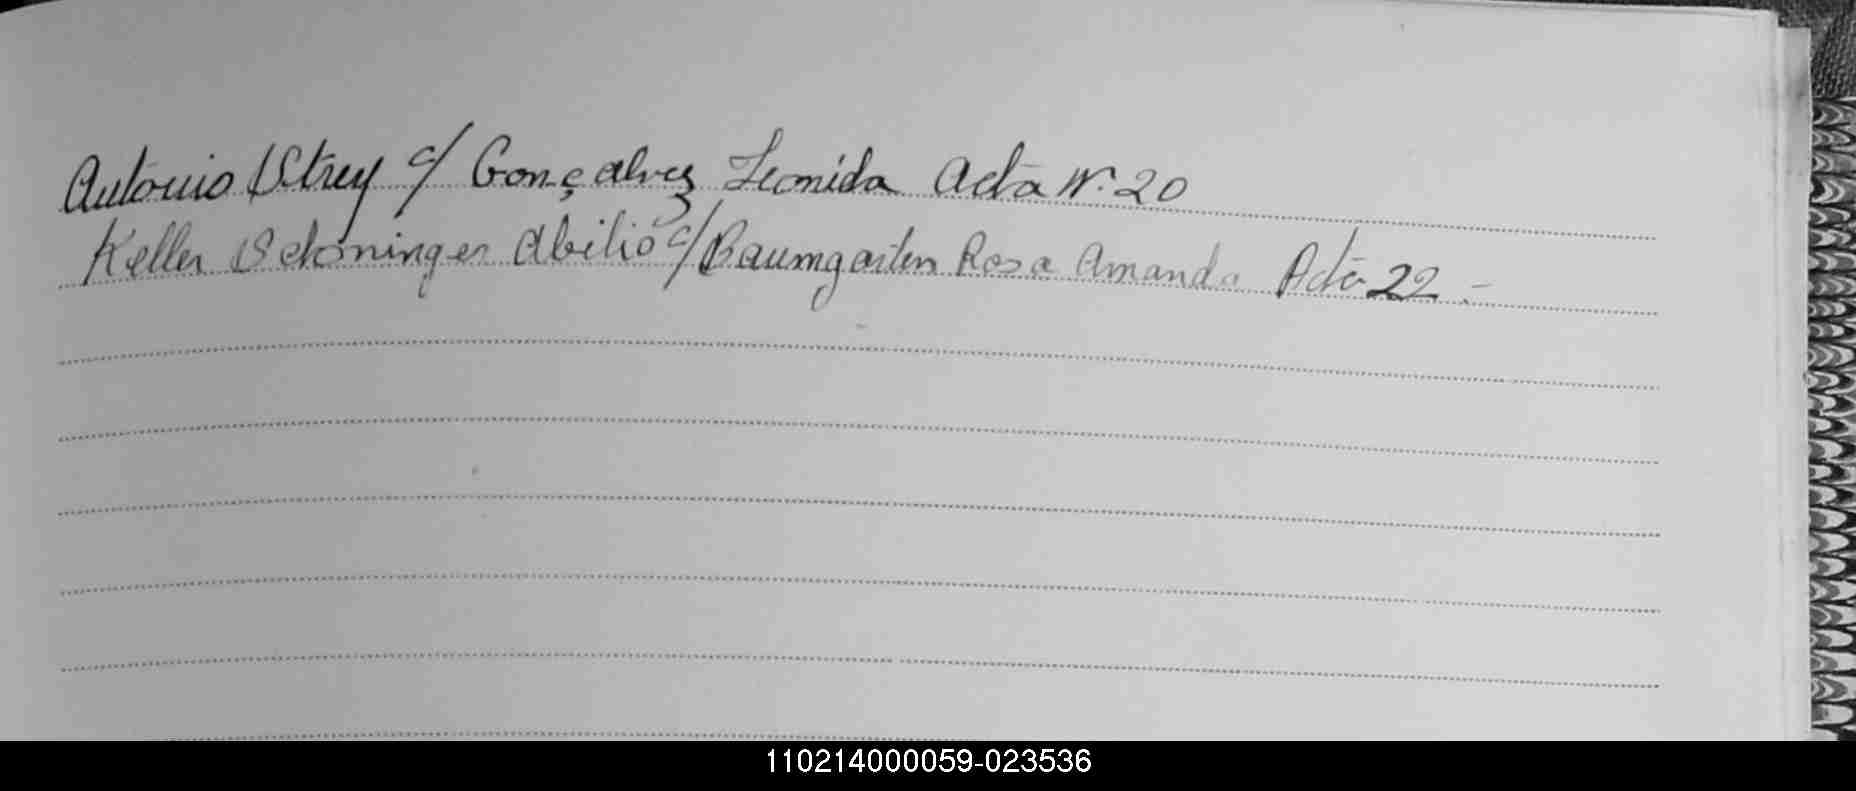 Antonio Strey c/ Gonçalvez Leonida Acta Nº 20
Keller Schoninger Abilio c/ Baumgarten Rosa Amanda Acta 22 -
110214000059-023536